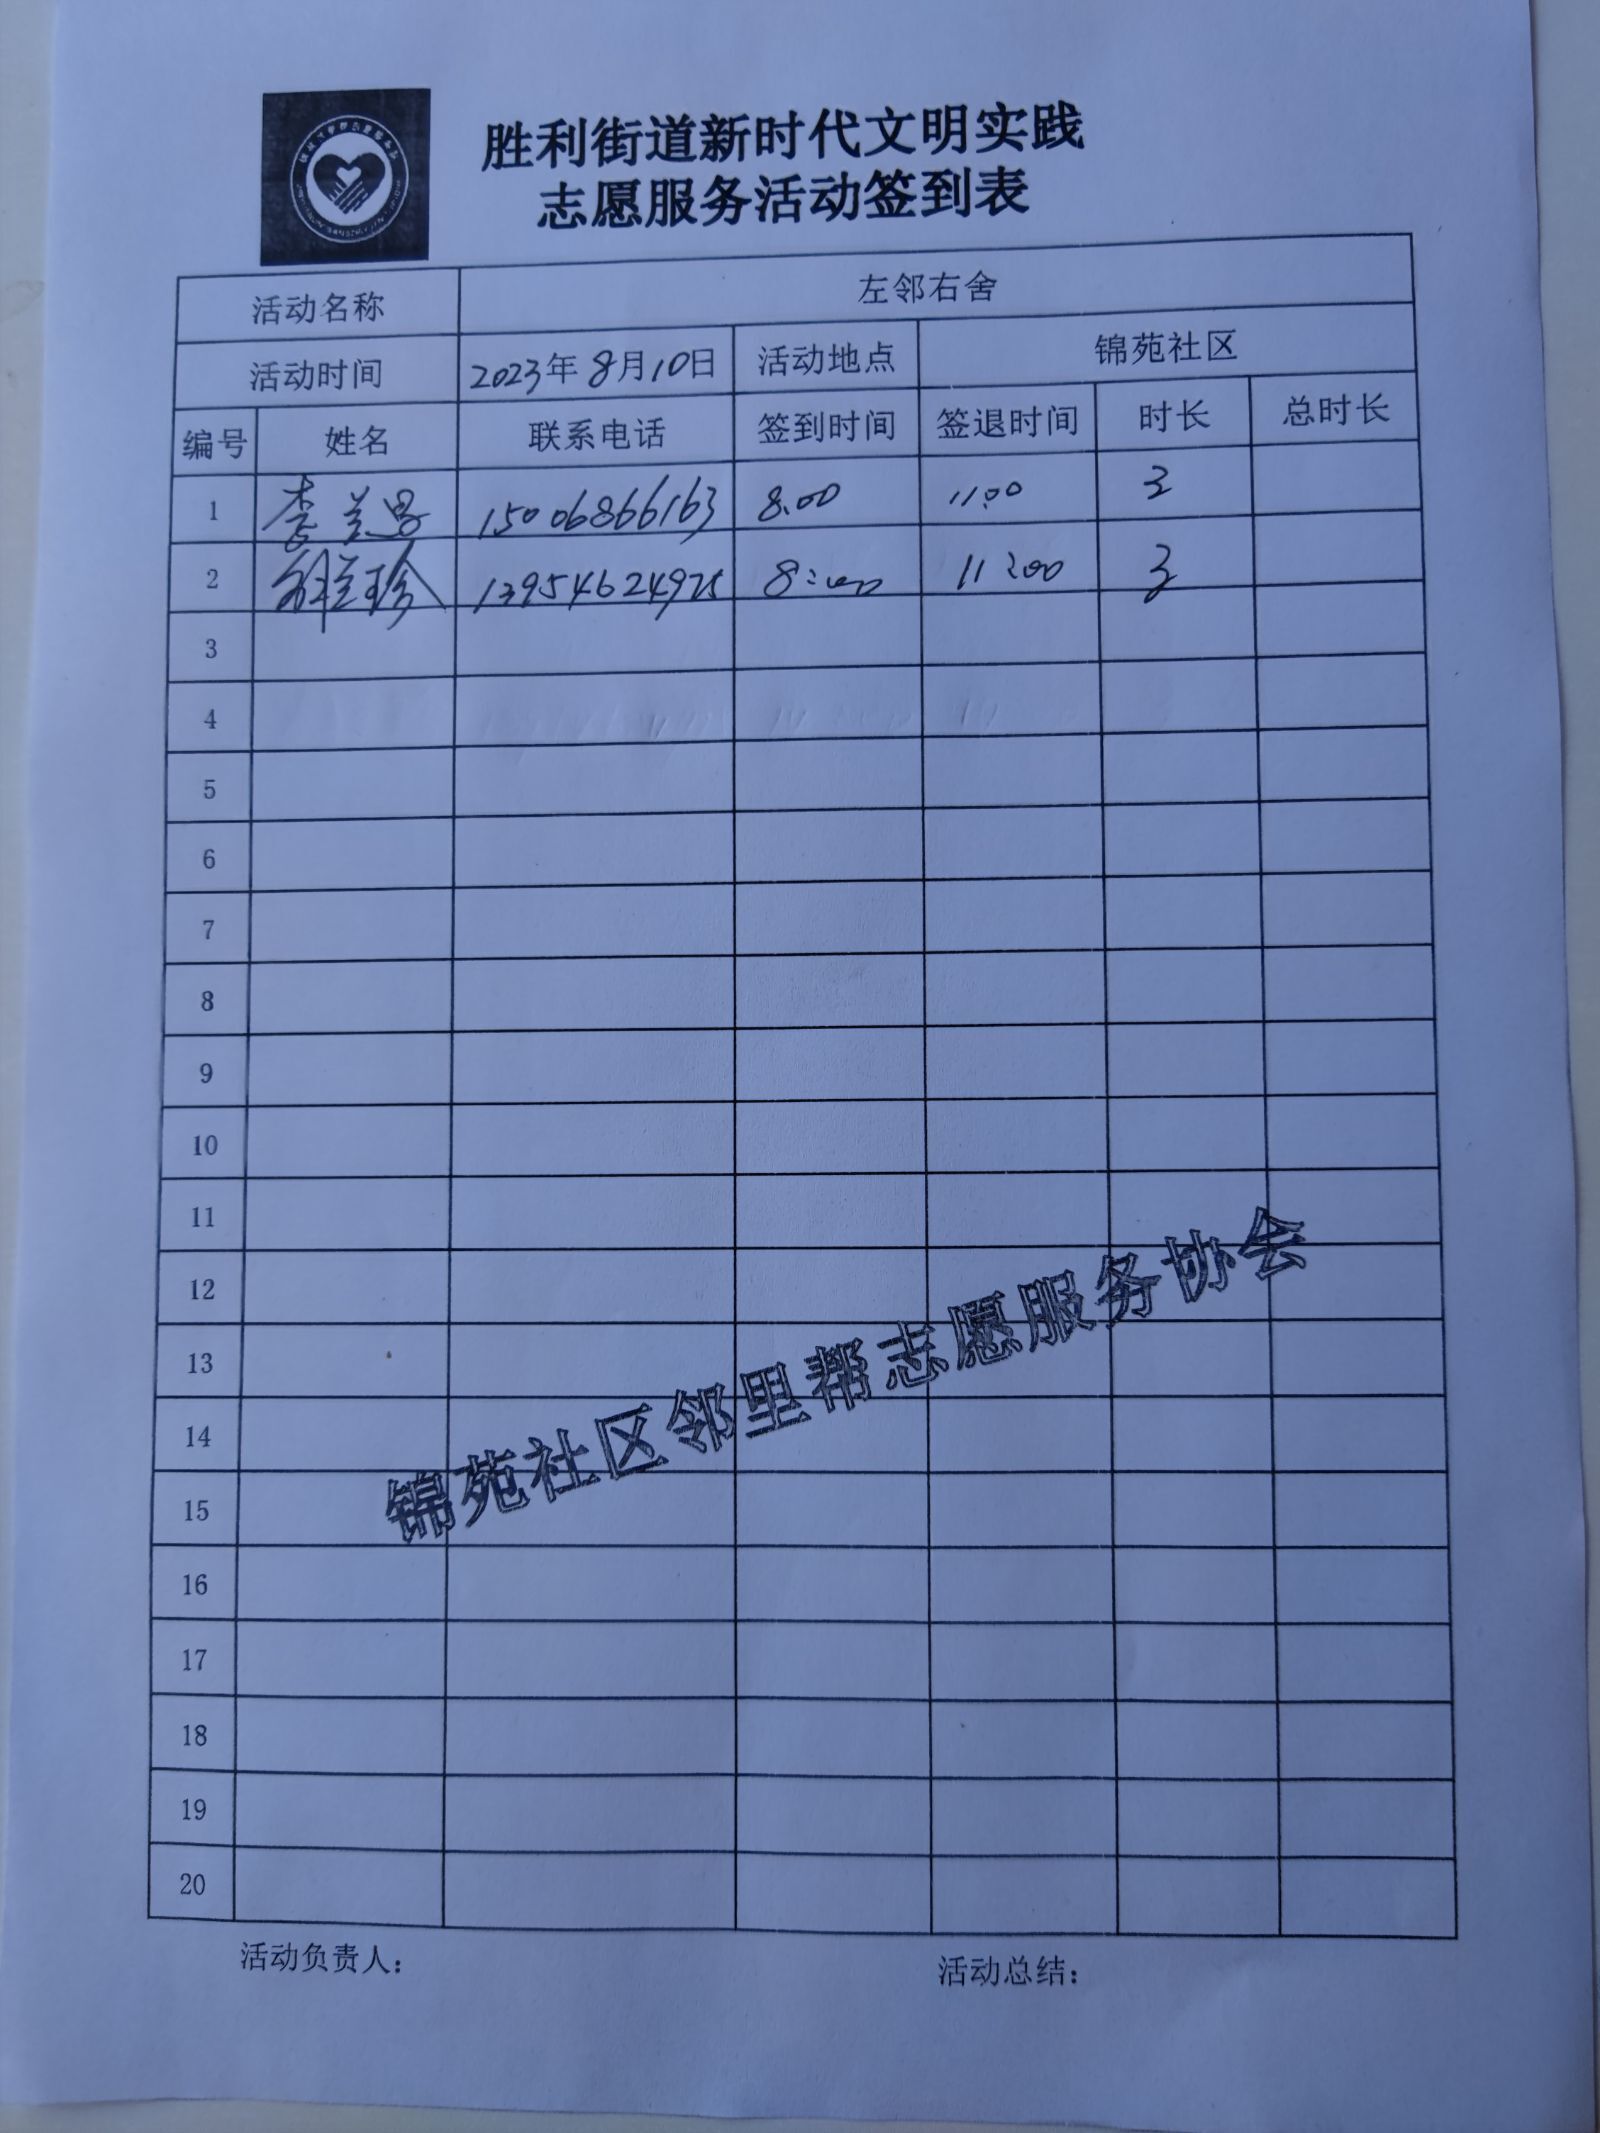 胜利街道新时代文明实践
志愿服务活动签到表
活动名称 左邻右舍
活动时间 2023年8月10日 活动地点 锦苑社区
编号 姓名 联系电话 签到时间 签退时间 时长 总时长
1 李兰 15006866163 8.00 11:00 3
2 兰珍 13954624975 8:00 11:00 3
3
4
5
6
7
8
9
10
11
12
13
14
15
16
17
18
19
20
锦苑社区邻里帮志愿服务协会
活动负责人: 活动总结: